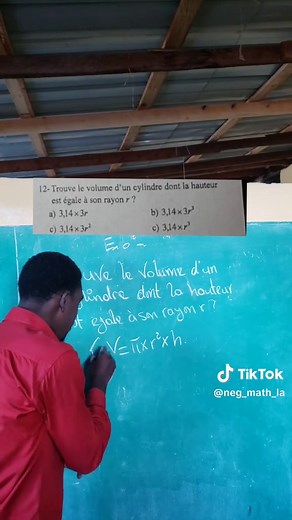 12- Trouve le volume d'un cylindre dont la hauteur
est égale à son rayon r ?
a) 3,14×3r b) 3,14×3r³
c) 3,14×3r² c) 3,14×r³
le Volume d'un
dont la hauteur
égale à son rayon r ?
V=π×r²×h.
TikTok
@neg_math_la